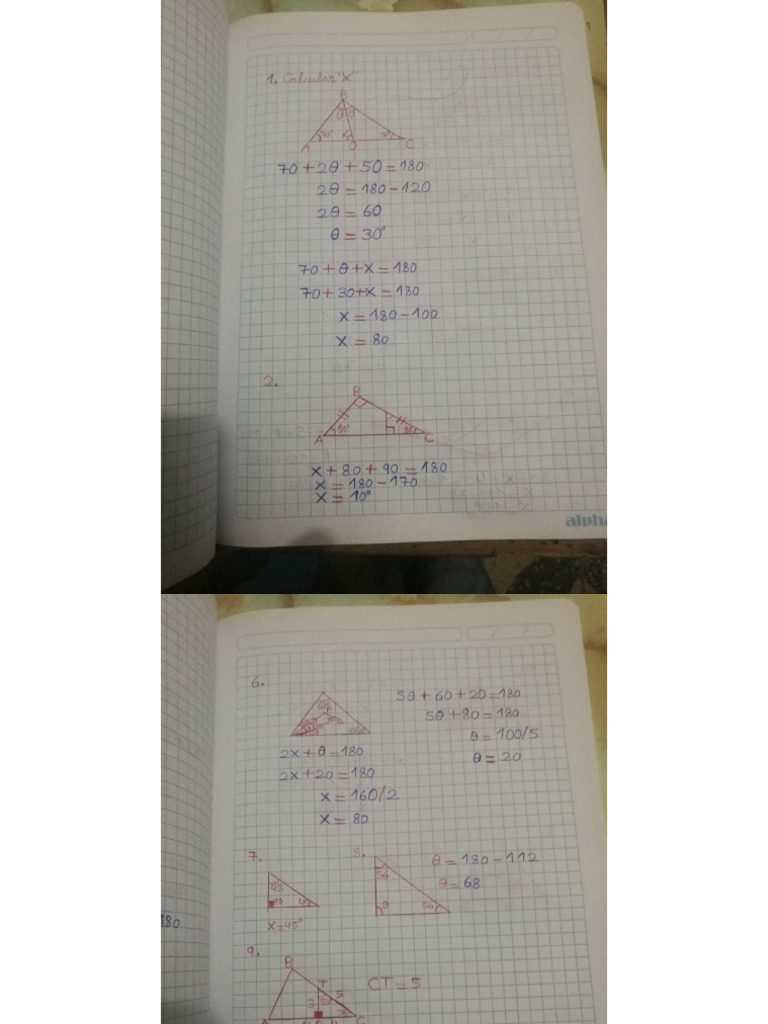 1. Calcular "X"
B
θ θ
A
C
70 + 2θ + 50 = 180
2θ = 180 - 120
2θ = 60
θ = 30°
70 + θ + x = 180
70 + 30 + x = 180
x = 180 - 100
x = 80
2.
B
A
80°
C
x + 80 + 90 = 180
x = 180 - 170
x = 10°
alpha
6.
5θ + 60 + 20 = 180
5θ + 80 = 180
θ = 100/5
θ = 20
2x + θ = 180
2x + 20 = 180
x = 160/2
x = 80
7.
45
x = 45°
8.
56
θ
56
θ = 180 - 112
θ = 68
180
9.
B
T
CT = 5
3
5
C